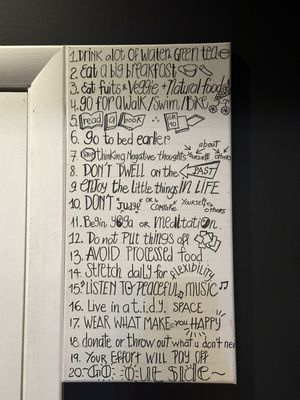 1. DRINK a lot OF WATER & GREEN tea
2. Eat a big breakfast
3. Eat fuits & Veggie + Natural food
4. GO for a WALK / Swim / Bike
5. read a book OR 10
6. Go to bed earlier
7. STOP thinking Negative thoughts about Yourself others
8. DON'T DWELL on the PAST
9. enjoy the little things IN LIFE
10. DON'T Judge OR COMPARE YOURSELF OTHERS
11. Begin YOGA OR MEDITATION.
12. Do not Put things off
13. AVOID PROCESSED food
14. Stretch daily for FLEXIBILITY
15. LISTEN TO PEACEFUL MUSIC
16. Live in a t.i.d.y. SPACE
17. WEAR WHAT MAKE you HAPPY
18. donate or throw out what u don't need
19. YOUR EFFORT WILL PAY OFF
20.